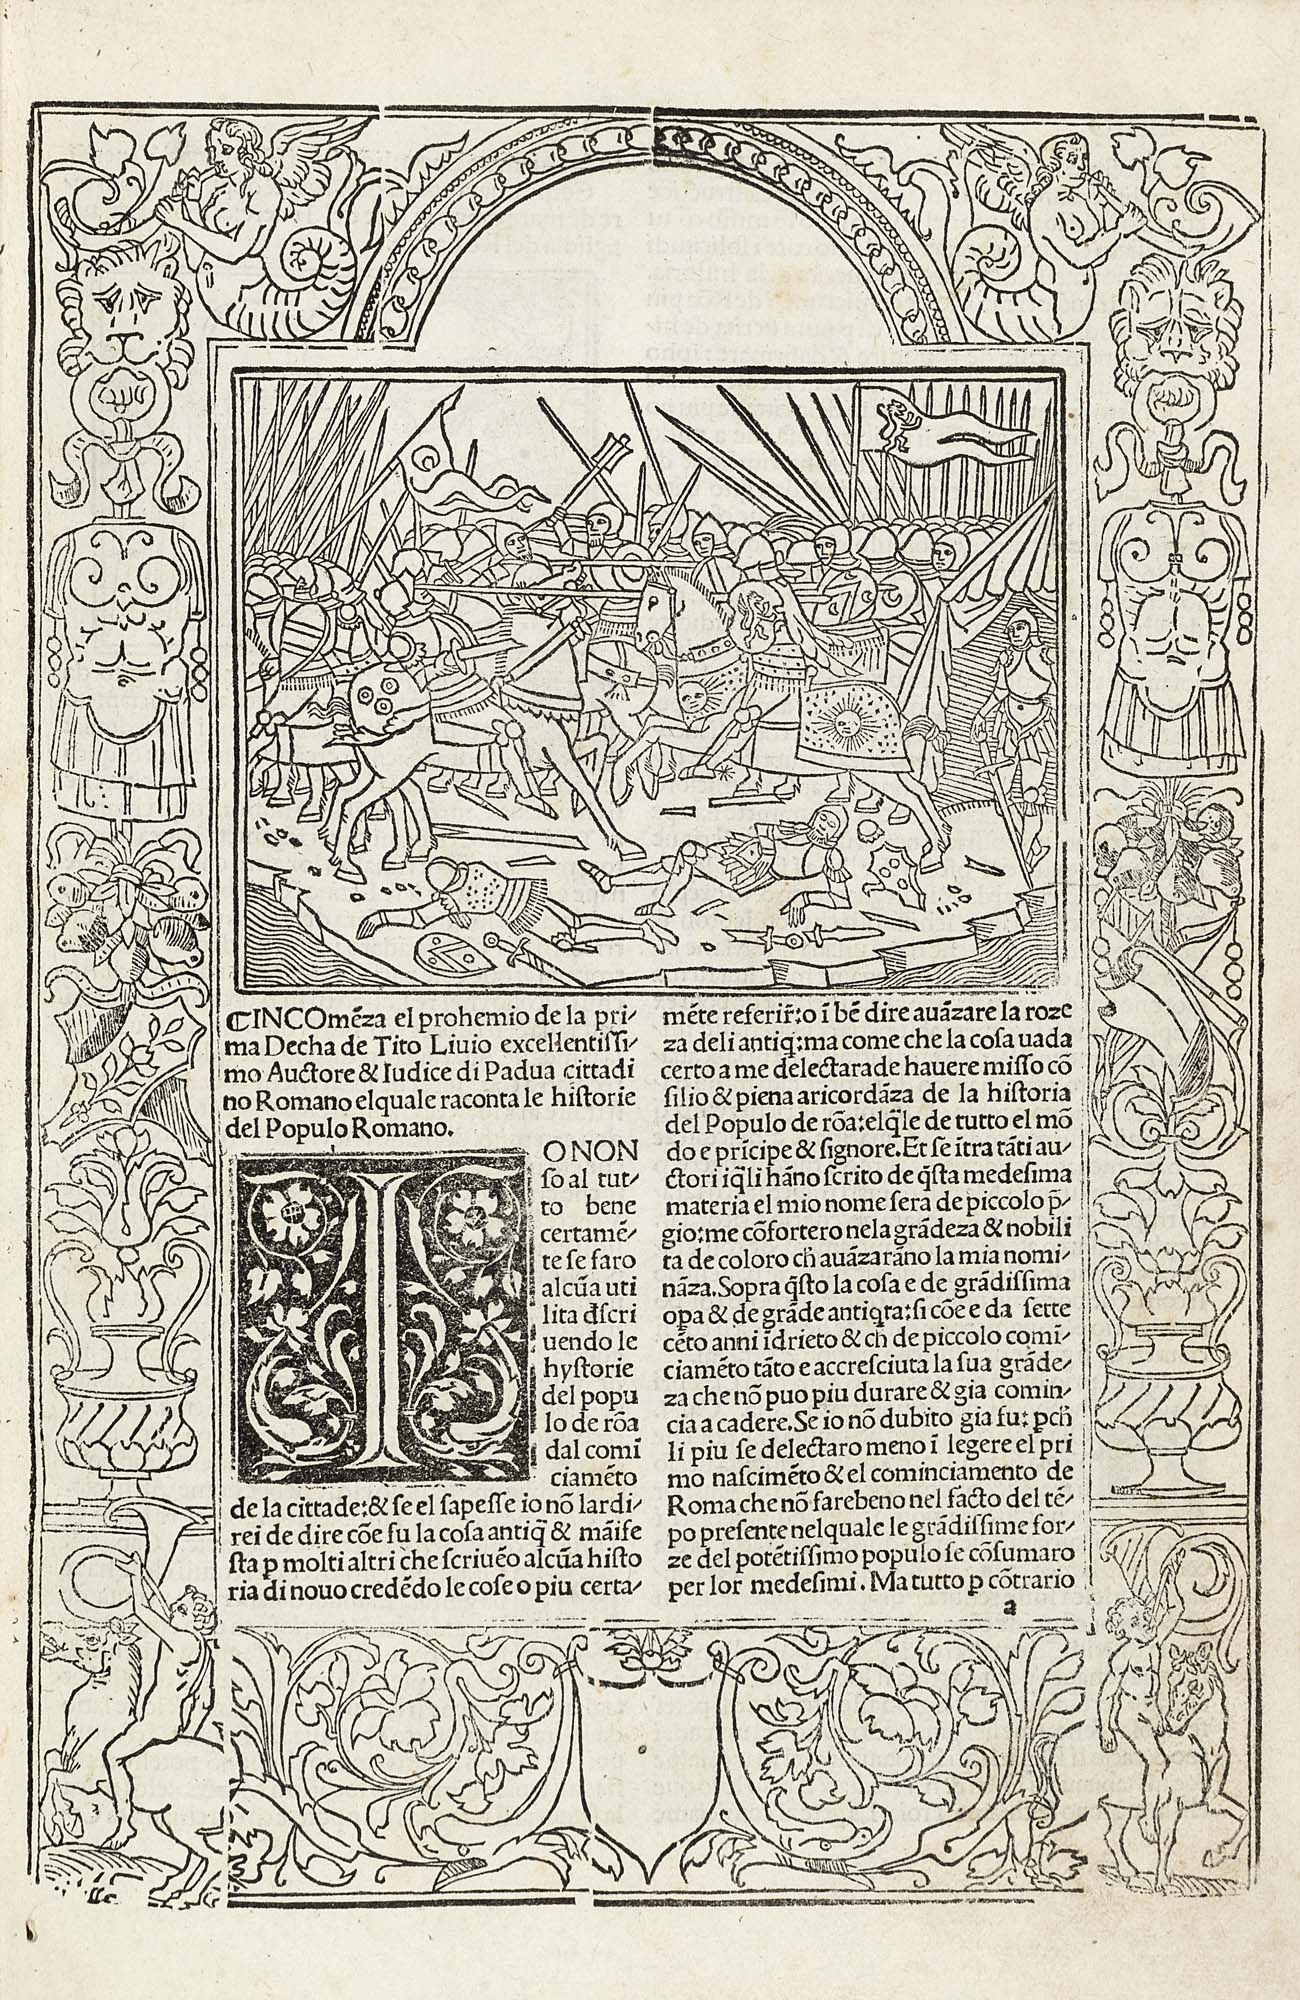 CINCOmēza el prohemio de la pri-
ma Decha de Tito Liuio excellentissi-
mo Auctore & Iudice di Padua cittadi
no Romano elquale raconta le historie
del Populo Romano.
IO NON
so al tut-
to bene
certamē-
te se faro
alcūa uti
lita dscri
uendo le
hystorie
del popu
lo de rōa
dal comī
ciamēto
de la cittade: & se el sapesse io nō lardi-
rei de dire cōe fu la cosa antiq̄ & māife
sta p molti altri che scriuēo alcūa histo
ria di nouo credēdo le cose o piu certa-
mēte referir̄: o ī bē dire auāzare la roze
za deli antiq: ma come che la cosa uada
certo a me delectarade hauere misso cō
silio & piena aricordāza de la historia
del Populo de rōa: elq̄le de tutto el mō
do e prīcipe & signore. Et se ītra tāti au-
ctori iq̄li hāno scrito de q̄sta medesima
materia el mio nome sera de piccolo p̄-
gio: me cōfortero nela grādeza & nobili
ta de coloro ch̄ auāzarāno la mia nomi-
nāza. Sopra q̄sto la cosa e de grādissima
opa & de grāde antiqta: si cōe e da sette
cēto anni īdrieto & ch̄ de piccolo comī-
ciamēto tāto e accresciuta la sua grāde-
za che nō puo piu durare & gia comin-
cia a cadere. Se io nō dubito gia fu: pch̄
li piu se delectaro meno ī legere el pri
mo nascimēto & el cominciamento de
Roma che nō farebeno nel facto del tē-
po presente nelquale le grādissime for-
ze del potētissimo populo se cōsumaro
per lor medesimi. Ma tutto p cōtrario
a